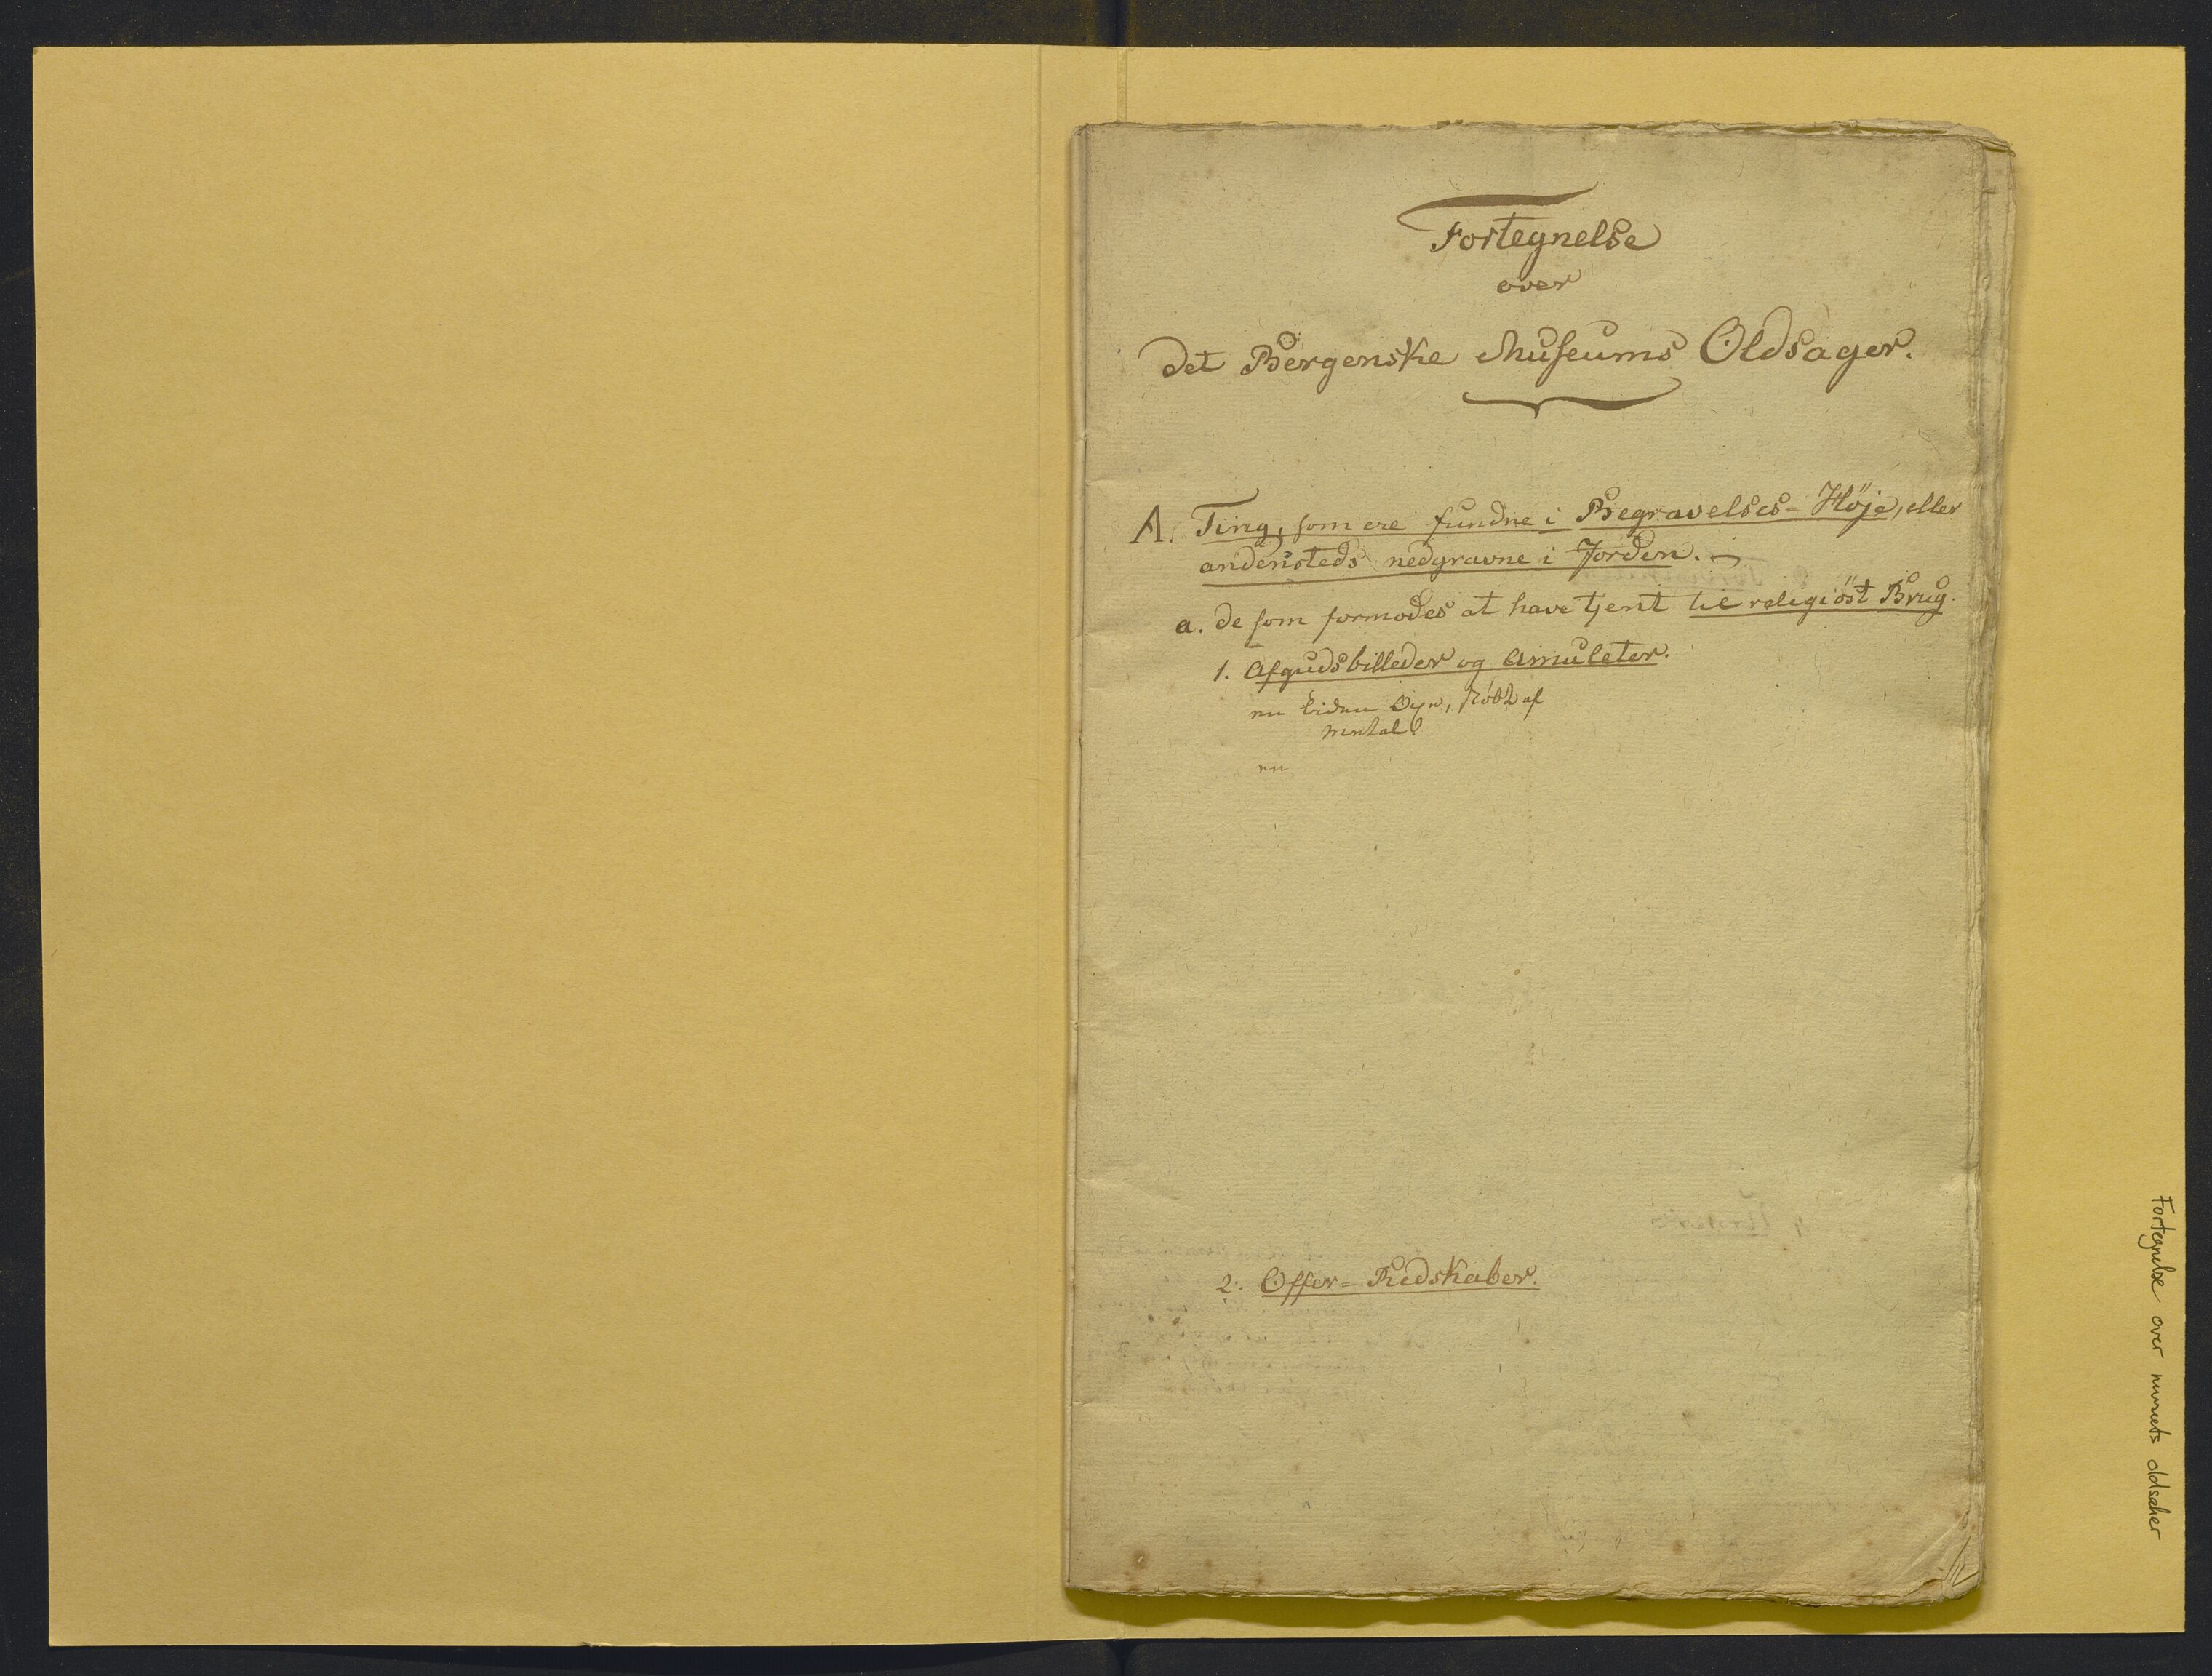 Fortegnelse
over
Det Bergenske Museums Oldsager.
A. Ting, som ere fundne i Begravelses-Höje, eller
andensteds nedgravne i Jorden. —
a. De som formodes at have tjent til religiöst Brug.
1. Afgudsbilleder og Amuleter.
en liden
Metal
en
2. Offer-Redskaber.
Fortegnelse over museets oldsaker